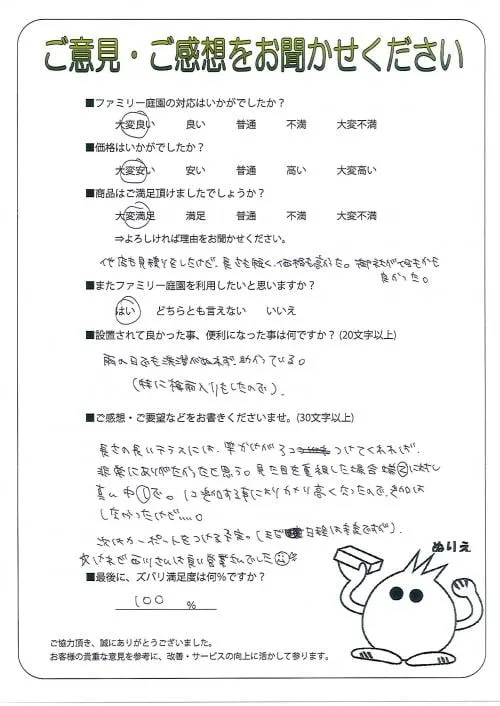 ご意見・ご感想をお聞かせください
■ファミリー庭園の対応はいかがでしたか？
大変良い 良い 普通 不満 大変不満
■価格はいかがでしたか？
大変安い 安い 普通 高い 大変高い
■商品はご満足頂けましたでしょうか？
大変満足 満足 普通 不満 大変不満
⇒よろしければ理由をお聞かせください。
他店も見積りをしたけど、長さも短く、価格も高かった。御社が何もかも
良かった。
■またファミリー庭園を利用したいと思いますか？
はい どちらとも言えない いいえ
■設置されて良かった事、便利になった事は何ですか？(20文字以上)
雨の日でも洗濯がぬれず、助かっている。
(特に梅雨入りをしたので)。
■ご感想・ご要望などをお書きくださいませ。(30文字以上)
長さの長いテラスには、竿かけが3コ つけてくれれば、
非常にありがたかったと思う。見た目を重視した場合 端②に対し
真ん中①で。1コ追加する事によりかなり高くなったので、追加は
しなかったけど…。
次はカーポートをつける予定。(まだ 日程は未定ですが)。
■最後に、ズバリ満足度は何％ですか？
100 ％
ぬりえ
ご協力頂き、誠にありがとうございました。
お客様の貴重な意見を参考に、改善・サービスの向上に活かして参ります。